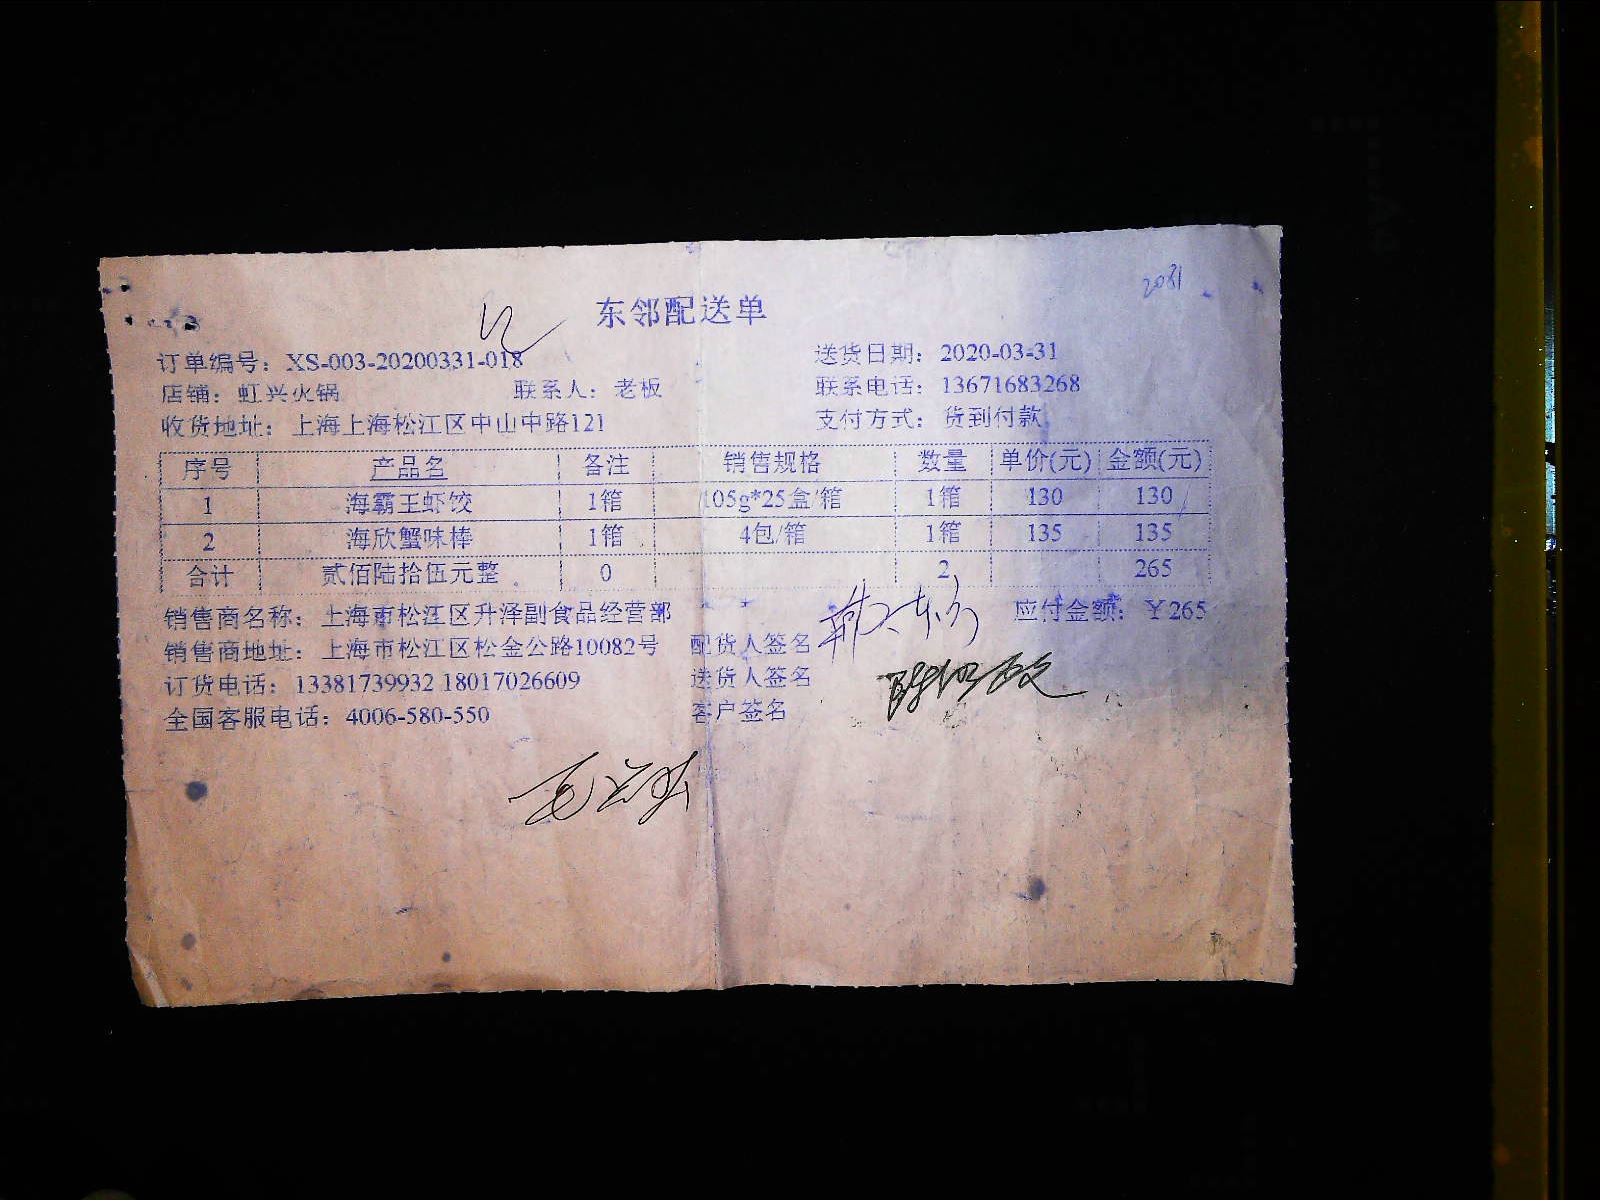 2031
东邻配送单
订单编号：XS-003-20200331-018 送货日期：2020-03-31
店铺：虹兴火锅 联系人：老板 联系电话：13671683268
收货地址：上海上海松江区中山中路121 支付方式：货到付款
序号 产品名 备注 销售规格 数量 单价(元) 金额(元)
1 海霸王虾饺 1箱 105g*25盒/箱 1箱 130 130
2 海欣蟹味棒 1箱 4包/箱 1箱 135 135
合计 贰佰陆拾伍元整 0 2 265
销售商名称：上海市松江区升泽副食品经营部 应付金额：￥265
销售商地址：上海市松江区松金公路10082号 配货人签名
订货电话：13381739932 18017026609 送货人签名
全国客服电话：4006-580-550 客户签名